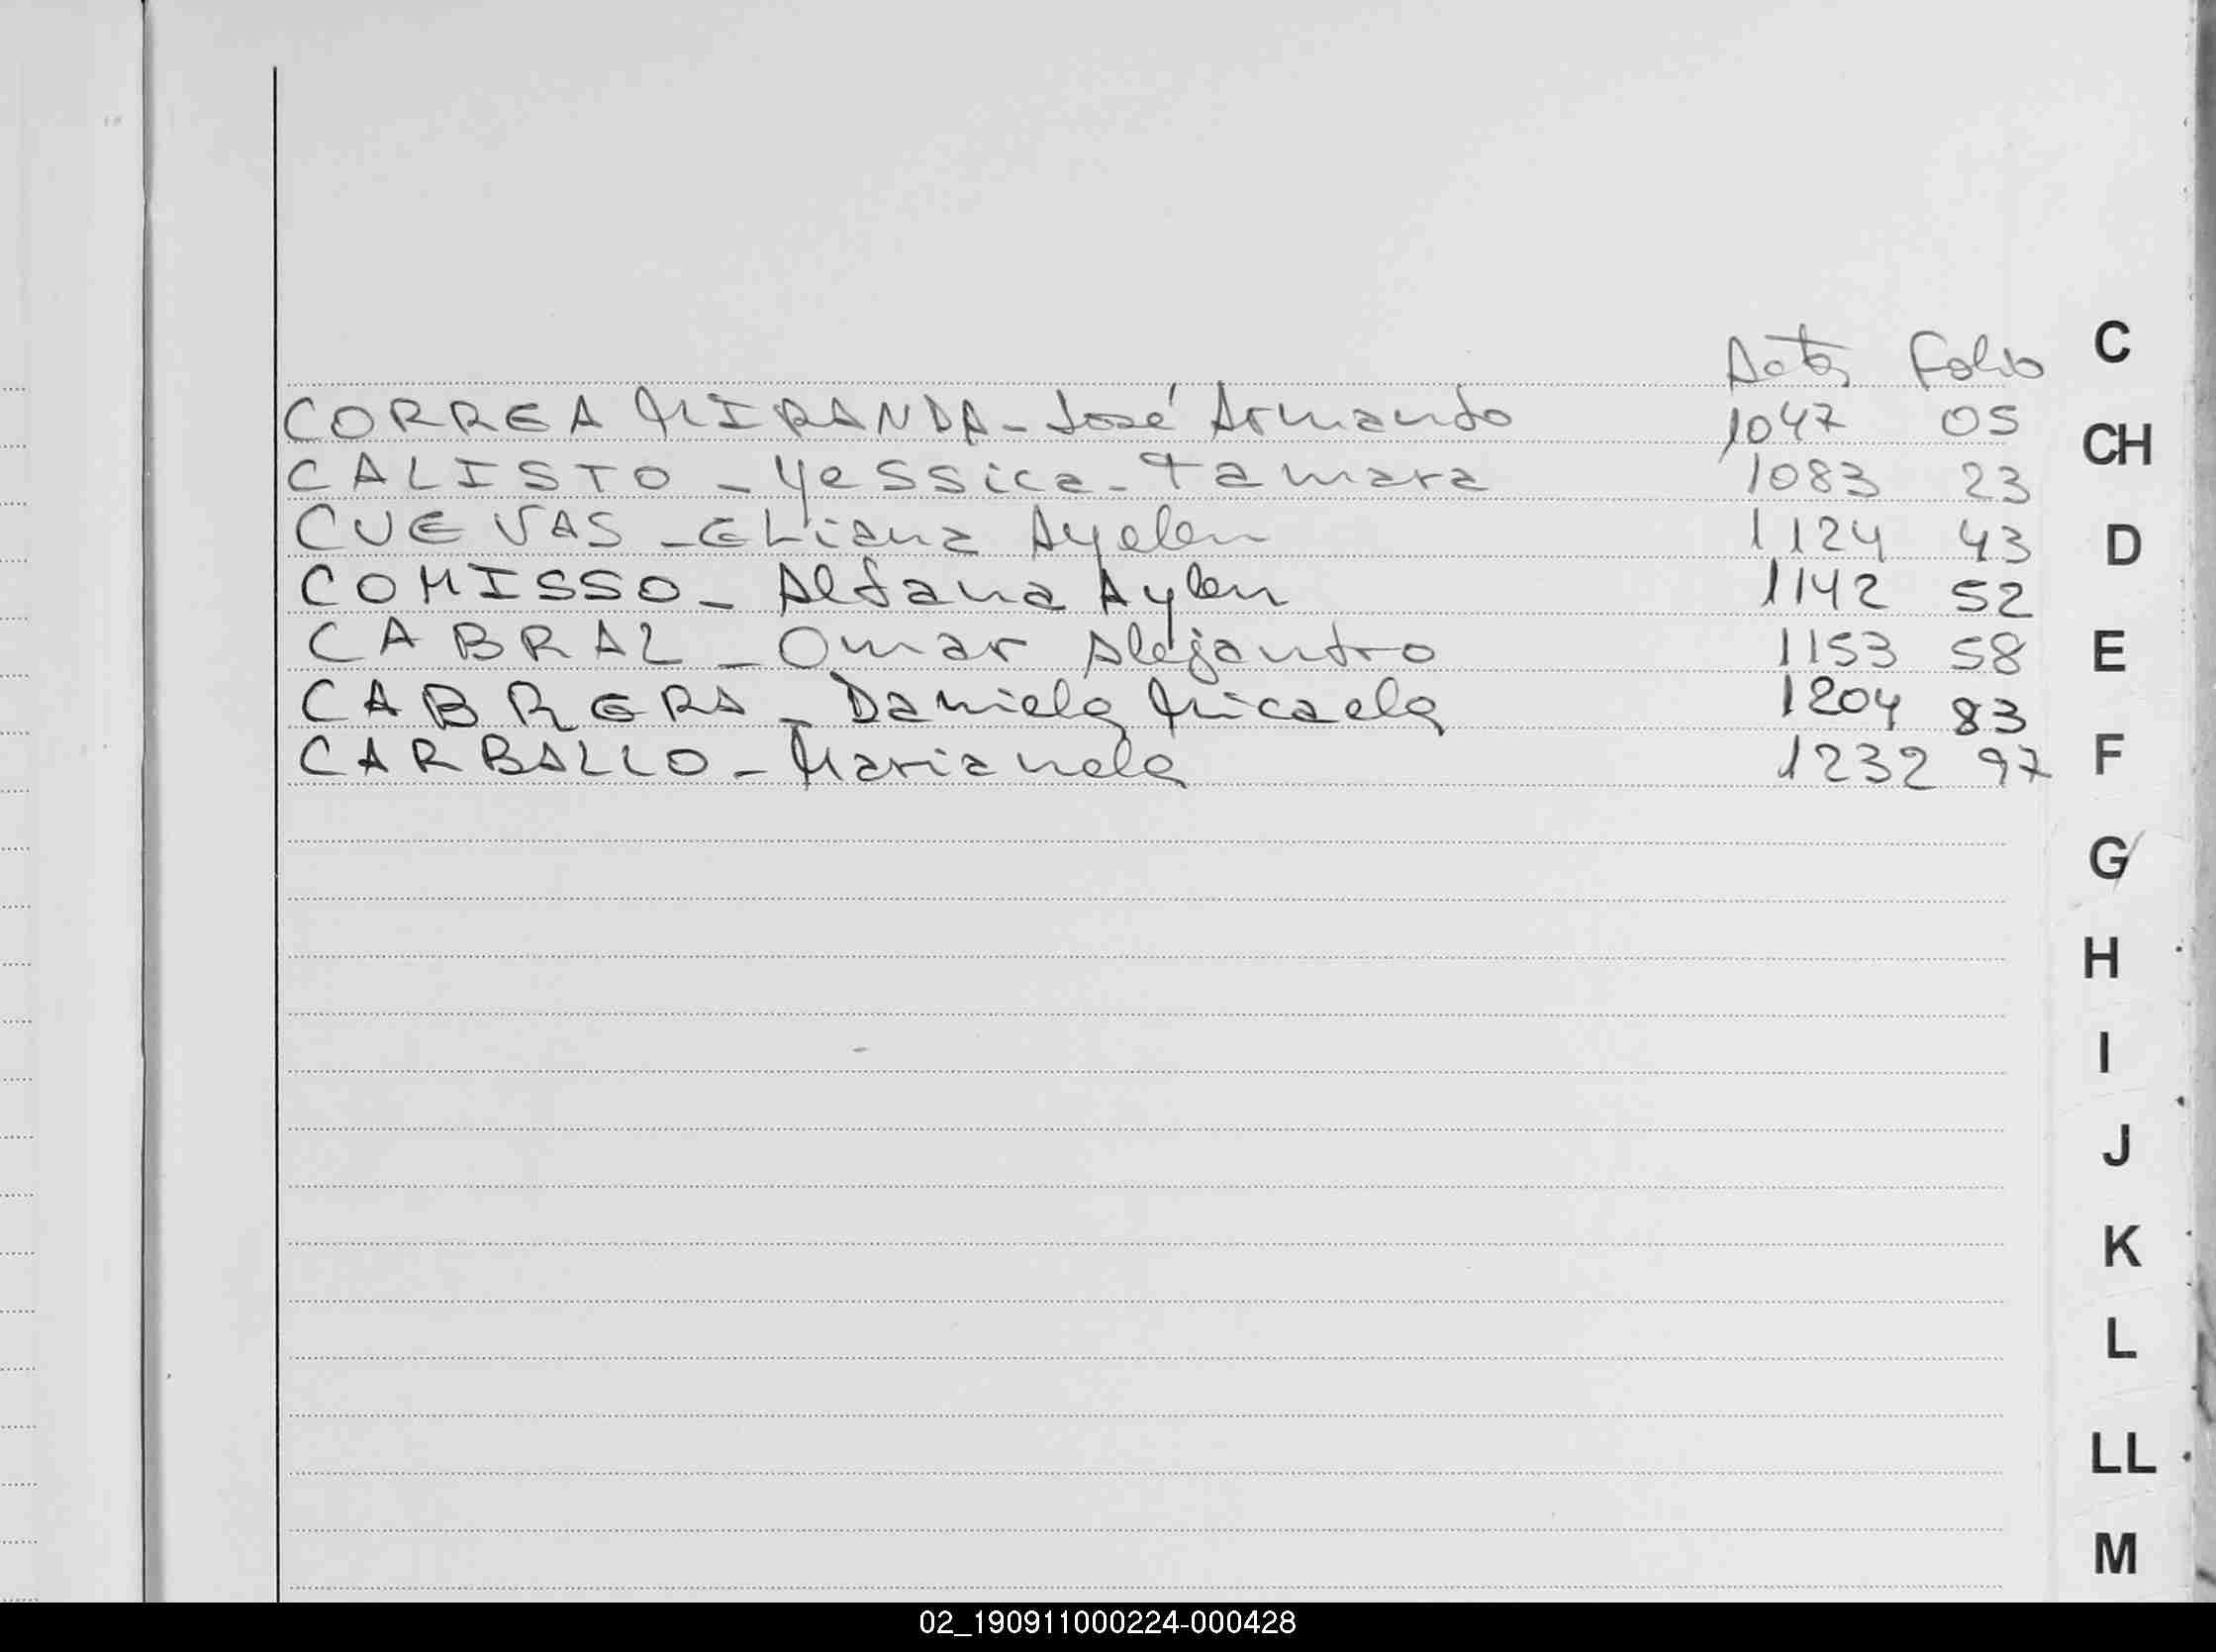 Acta Folio
CORREA MIRANDA - José Armando 1047 05
CALISTO - Yessica - Tamara 1083 23
CUEVAS - ELiana Ayelen 1124 43
COMISSO - Aldana Aylen 1142 52
CABRAL - Omar Alejandro 1153 58
CABRERA - Daniela Micaela 1204 83
CARBALLO - Marianela 1232 97
C
CH
D
E
F
G
H
I
J
K
L
LL
M
02_190911000224-000428